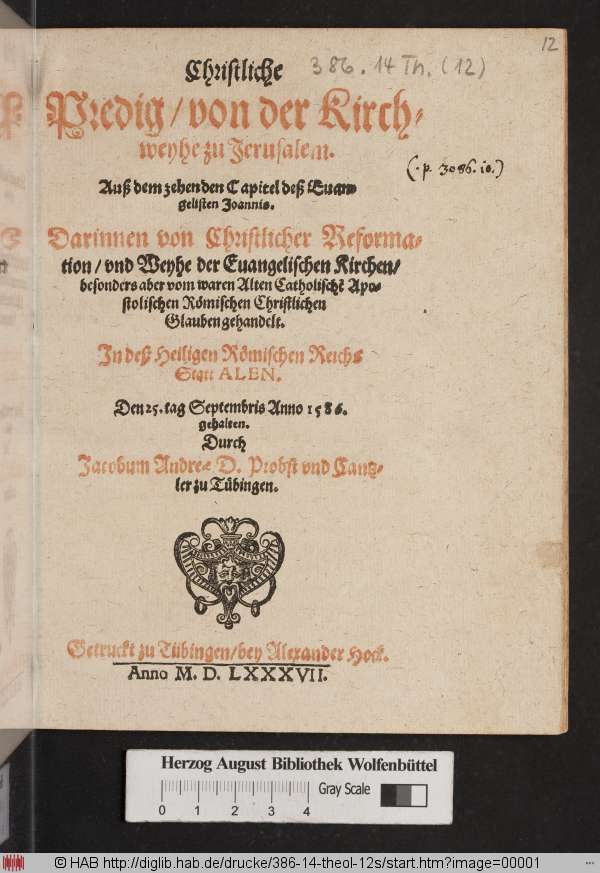 12
Christliche 386.14 Th. (12)
Predig / von der Kirch-
weyhe zu Jerusalem.
(·p. 3086. io.)
Auß dem zehenden Capitel deß Euan-
gelisten Joannis.
Darinnen von Christlicher Reforma-
tion / vnd Weyhe der Euangelischen Kirchen /
besonders aber vom waren Alten Catholischē Apo-
stolischen Römischen Christlichen
Glauben gehandelt.
In deß Heiligen Römischen Reichs
Statt ALEN.
Den 25. tag Septembris Anno 1586.
gehalten.
Durch
Jacobum Andree D. Probst vnd Cantz-
ler zu Tübingen.
Getruckt zu Tübingen / bey Alexander Hock.
Anno M. D. LXXXVII.
Herzog August Bibliothek Wolfenbüttel
Gray Scale
0 1 2 3 4
© HAB http://diglib.hab.de/drucke/386-14-theol-12s/start.htm?image=00001